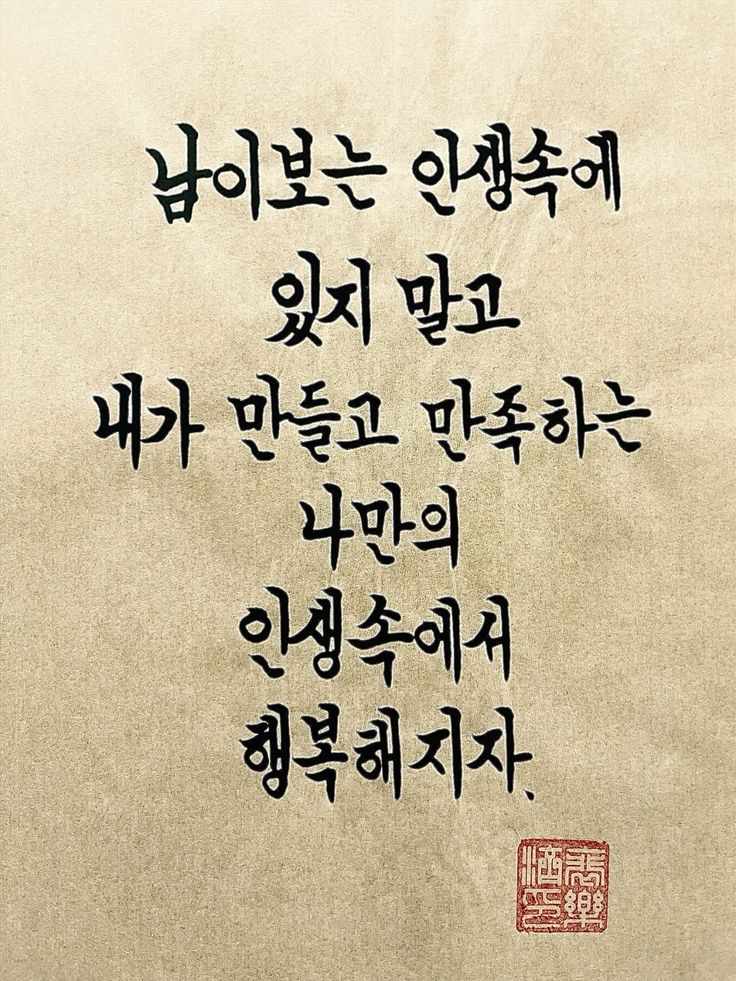 남이보는 인생속에
있지 말고
내가 만들고 만족하는
나만의
인생속에서
행복해지자.